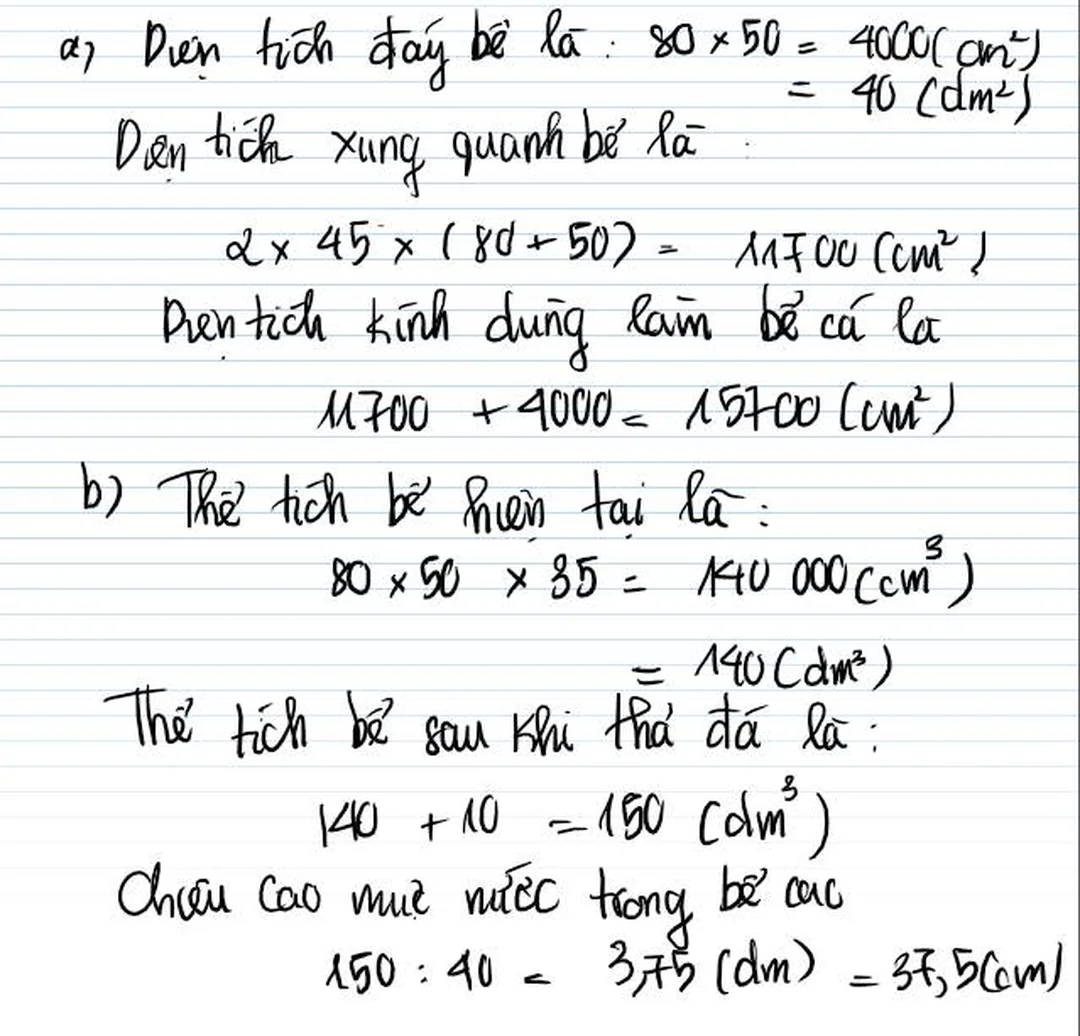 a) Diện tích đáy bể là : 80 × 50 = 4000 (cm²)
= 40 (dm²)
Diện tích xung quanh bể là :
2 × 45 × (80 + 50) = 11700 (cm²)
Diện tích kính dùng làm bể cá là
11700 + 4000 = 15700 (cm²)
b) Thể tích bể hiện tại là :
80 × 50 × 35 = 140 000 (cm³)
= 140 (dm³)
Thể tích bể sau khi thả đá là :
140 + 10 = 150 (dm³)
Chiều cao mực nước trong bể cao
150 : 40 = 3,75 (dm) = 37,5 (cm)